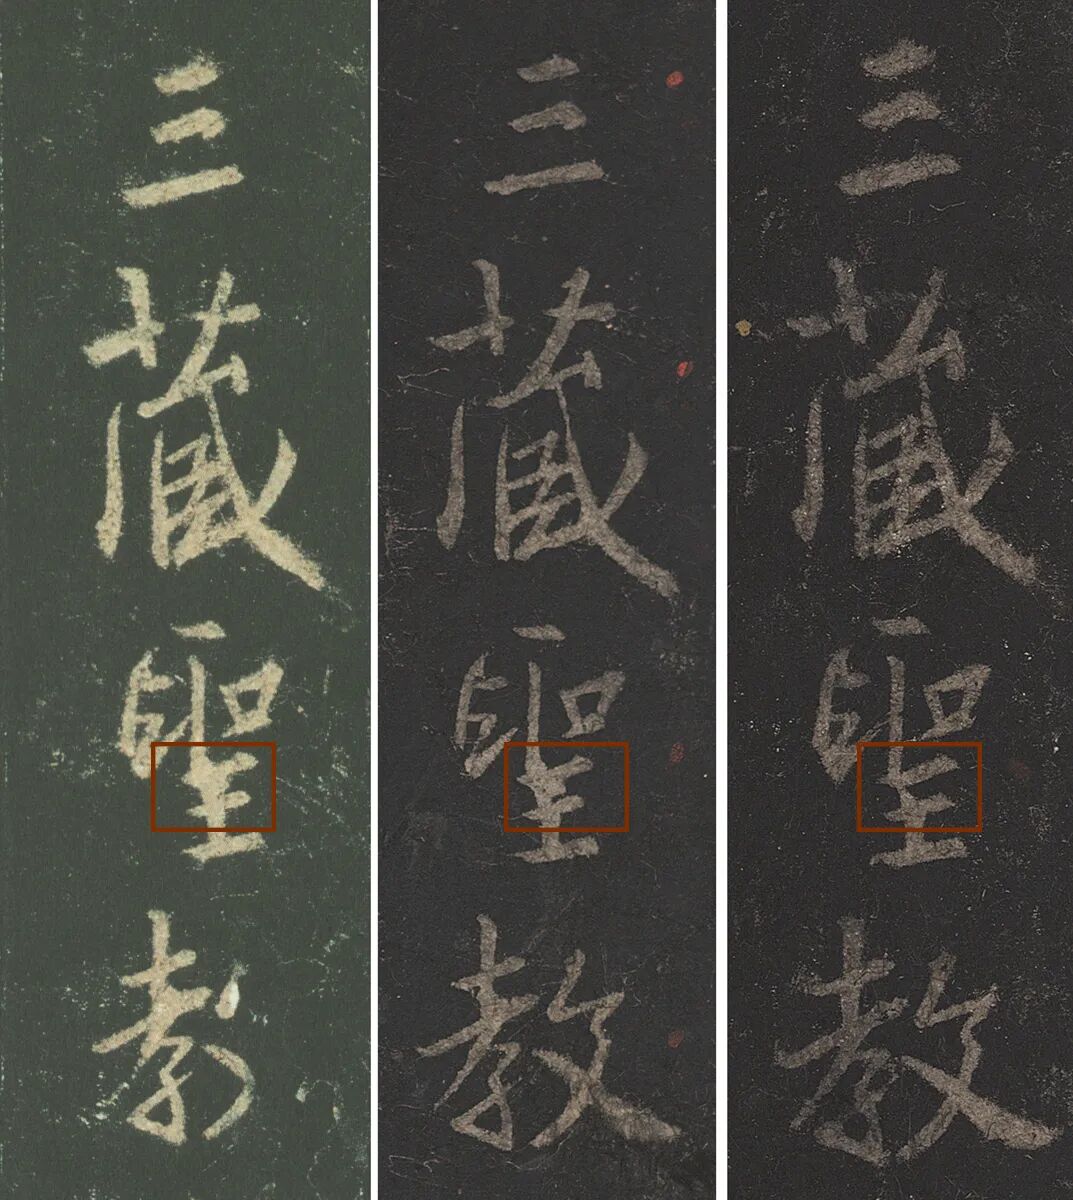 三藏聖教
三藏聖教
三藏聖教